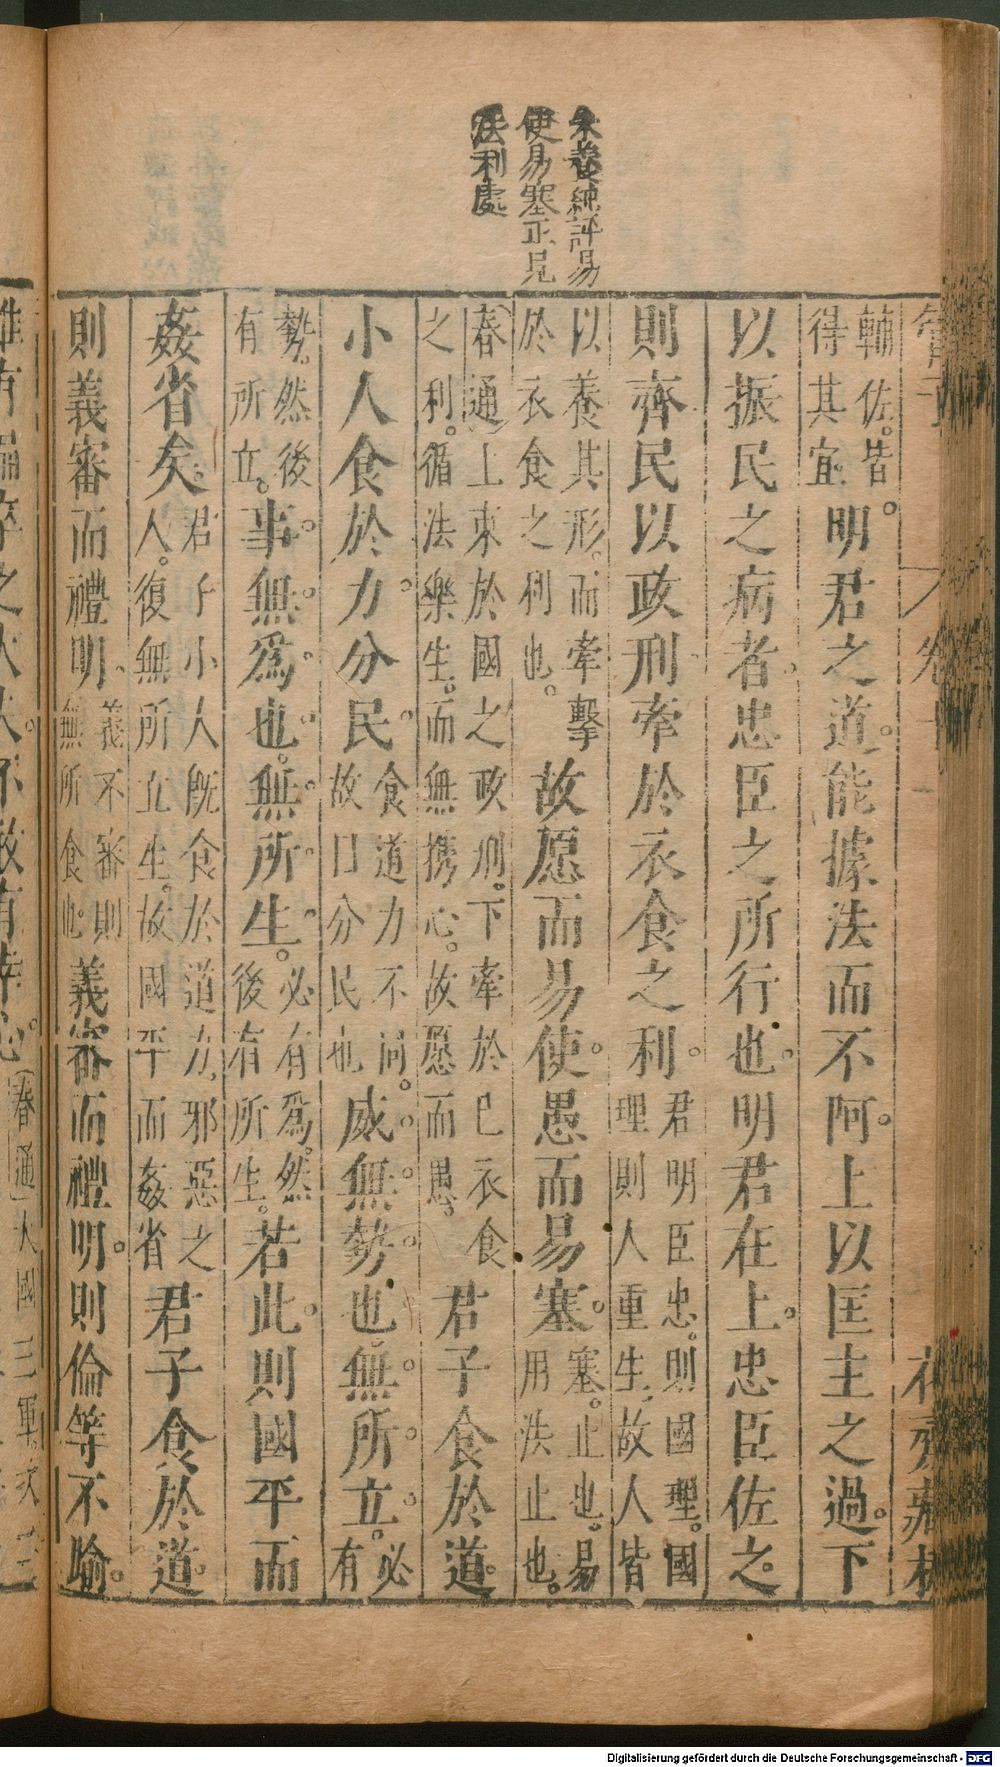 朱養純評易
使易塞正見
法利處
管子
卷十一
花齋藏板
輔佐。皆
得其宜。
明君之道。能據法而不阿。上以匡主之過。下
以振民之病者。忠臣之所行也。明君在上。忠臣佐之。
則齊民以政刑牽於衣食之利。
君明臣忠。則國理。國
理則人重生。故人皆
以養其形。而牽擊
於衣食之利也。
故愿而易使。愚而易塞。
塞。止也。易
用法止也。
春通上束於國之政刑。下牽於己衣食
之利。循法樂生。而無攜心。故愿而愚。
君子食於道。
小人食於力。分民。
食道力不同。
故曰分民也
威無勢也。無所立。
必
有
勢。然後
有所立。
事無爲也。無所生。
必有爲。然
後有所生。
若此。則國平而
姦省矣。
君子小人旣食於道力。邪惡之
人。復無所立生。故國平而姦省
君子食於道。
則義審而禮明。
義不審則
無所食也
義審而禮明。則倫等不踰。
雖有偏卒之大夫。不敢有幸心。
春通
大國三軍
Digitalisierung gefördert durch die Deutsche Forschungsgemeinschaft - DFG